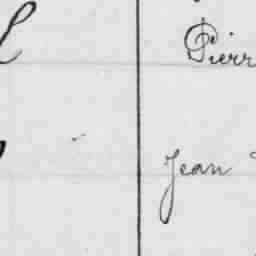 Pierr
Jean